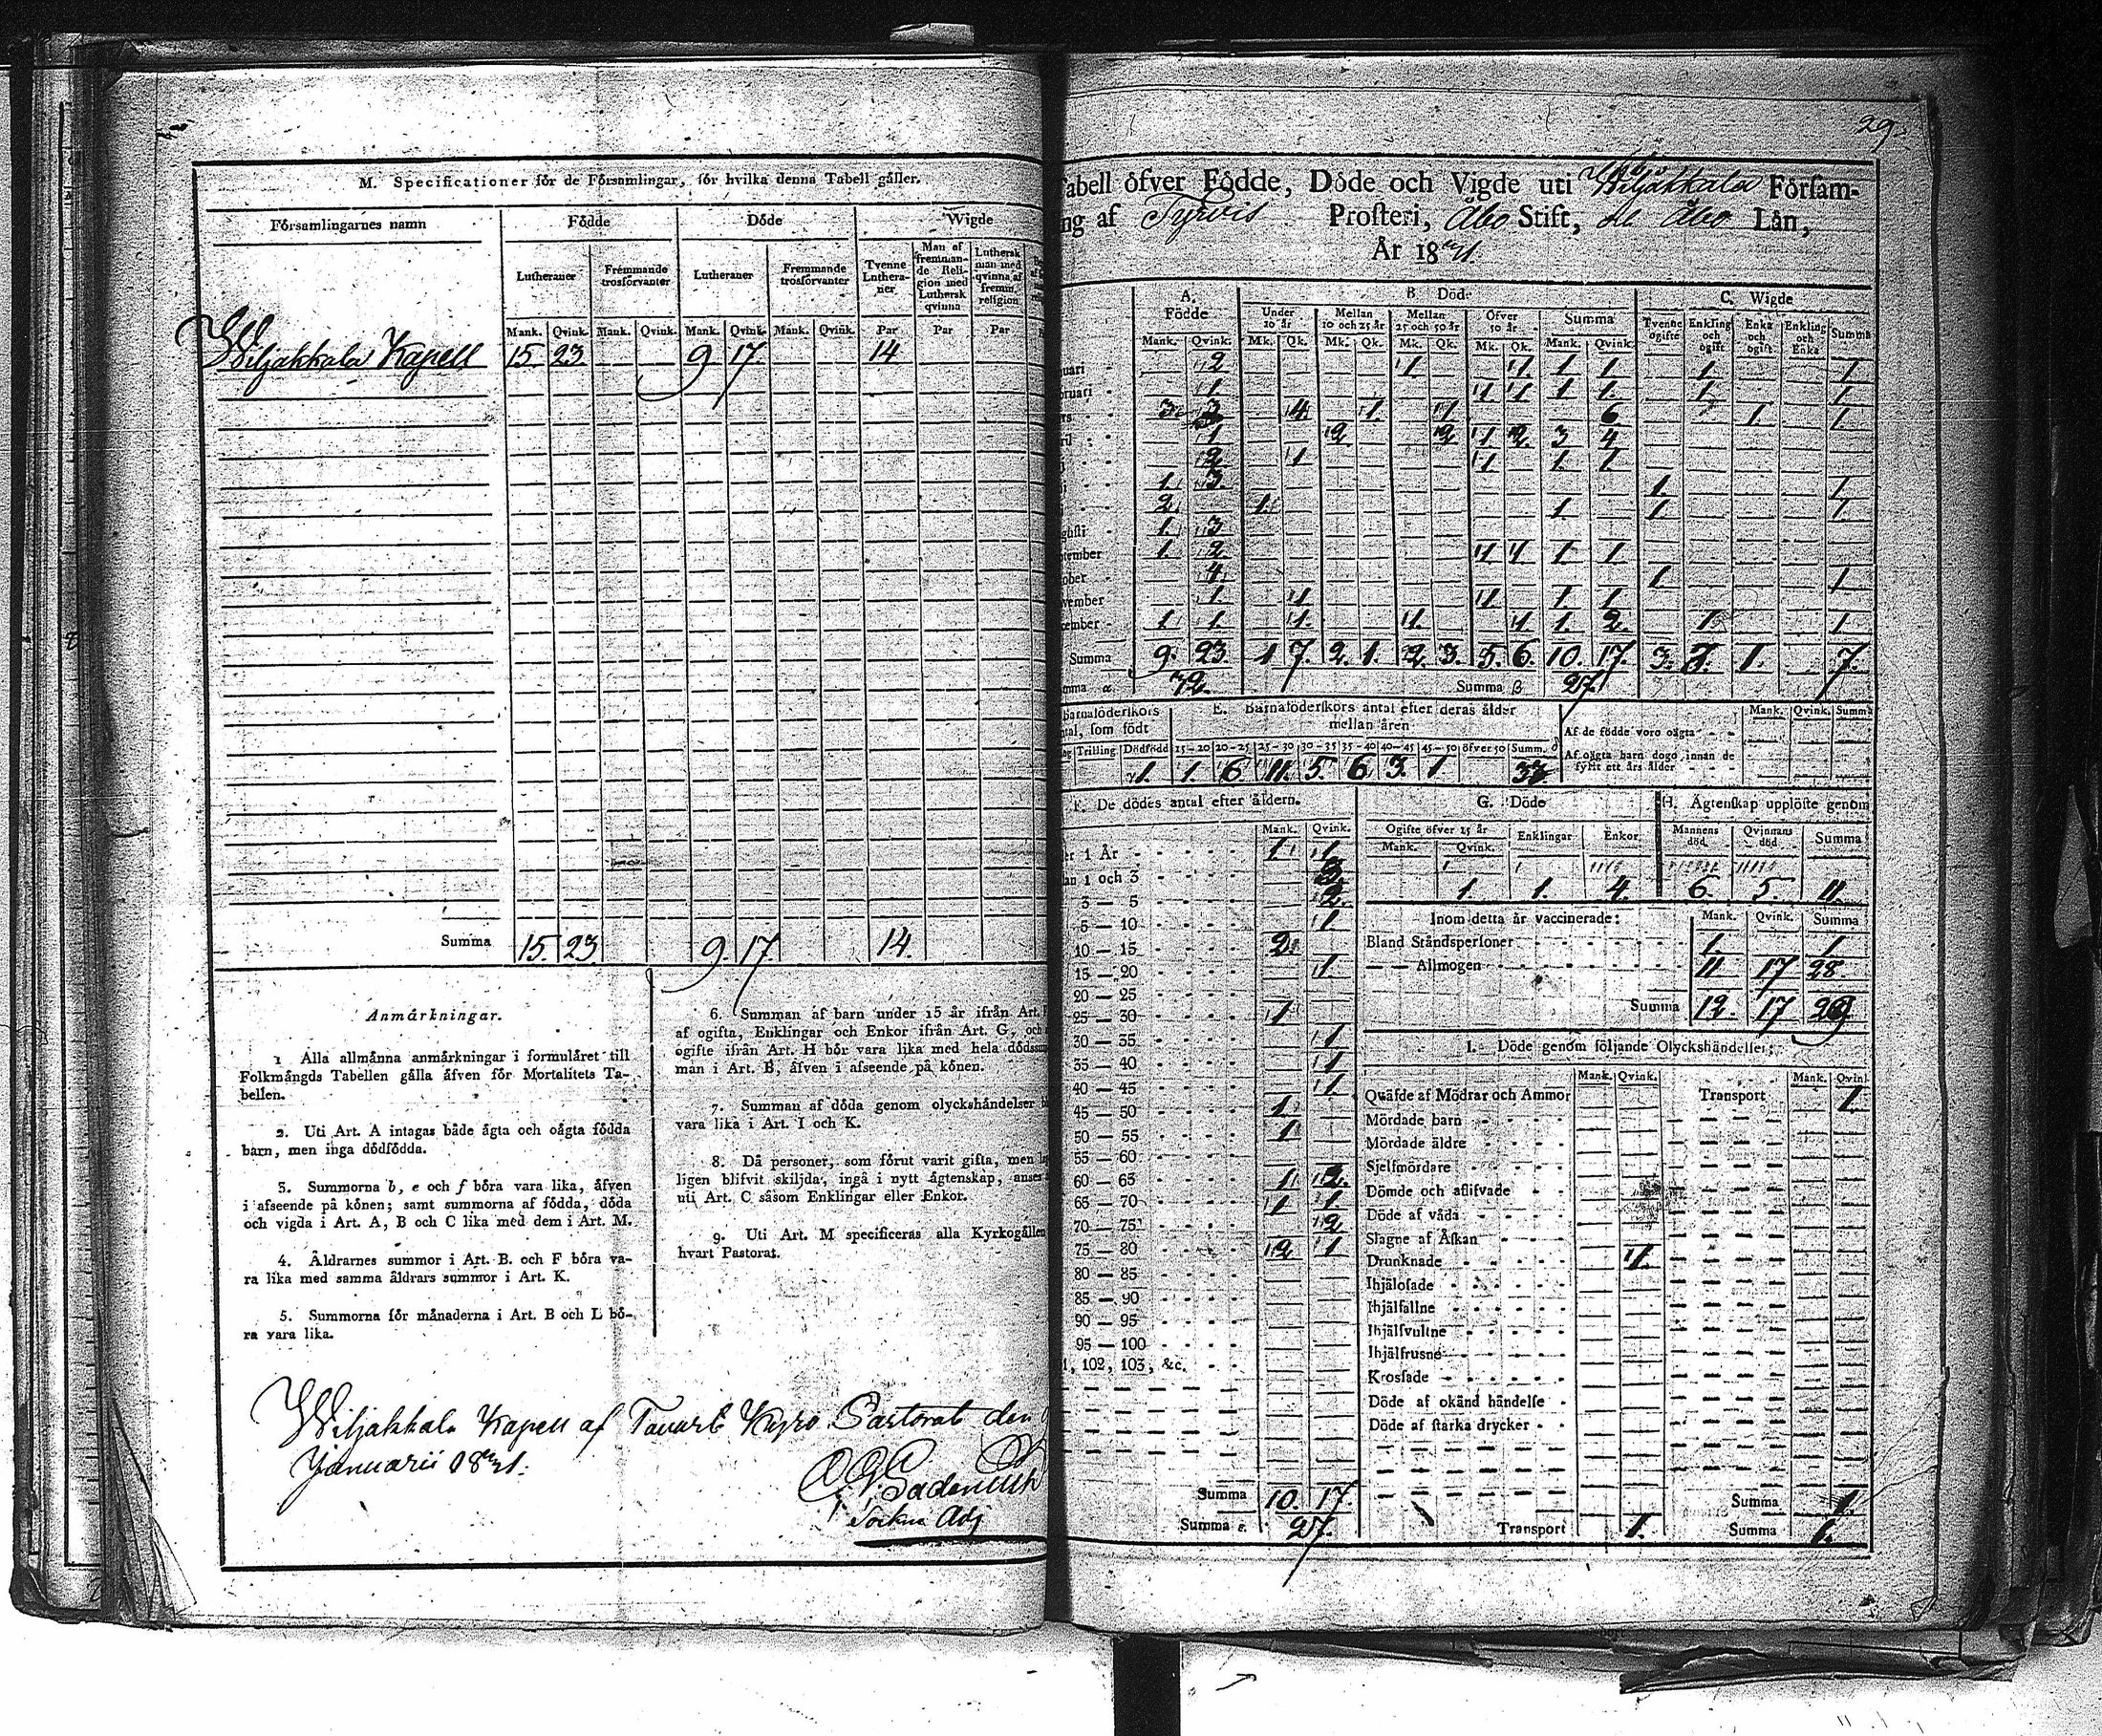 M. Specificationer för de Församlingar, för hvilka denna Tabell gäller.
Församlingarnes namn Födde Döde Wigde
Lutheraner Fremmande trosförvanter Lutheraner Fremmande trosförvanter Tvenne Lutheraner Man af fremmande Religion med Luthersk qvinna Luthersk man med qvinna af fremm. religion
Mank. Qvink. Mank. Qvink. Mank. Qvink. Mank. Qvink. Par Par Par
Wiljakkala Kapell 15. 23. 9 17. 14
Summa 15. 23 9. 17. 14.
Anmärkningar.
1 Alla allmänna anmärkningar i formuläret till
Folkmängds Tabellen gälla äfven för Mortalitets Ta-
bellen.
2. Uti Art. A intagas både ägta och oägta födda
barn, men inga dödfödda.
3. Summorna b, e och f böra vara lika, äfven
i afseende på könen; samt summorna af födda, döda
och vigda i Art. A, B och C lika med dem i Art. M.
4. Åldrarnes summor i Art. B. och F böra va-
ra lika med samma åldrars summor i Art. K.
5. Summorna för månaderna i Art. B och L bö-
ra vara lika.
6. Summan af barn under 15 år ifrån Art.
af ogifta, Enklingar och Enkor ifrån Art. G, och
ogifte ifrån Art. H bör vara lika med hela dödssum
man i Art. B, äfven i afseende på könen.
7. Summan af döda genom olyckshändelser
vara lika i Art. I och K.
8. Då personer, som förut varit gifta, men
ligen blifvit skiljda, ingå i nytt ägtenskap, anses
uti Art. C såsom Enklingar eller Enkor.
9. Uti Art. M specificeras alla Kyrkogällen
hvart Pastorat.
Wiljakkala Kapell af Tavast Kyro Pastorat den
Januarii 18
Adj
29.
Tabell öfver Födde, Döde och Vigde uti Wiljakkala Försam-
ng af Tyrvis Prosteri, Åbo Stift, Åbo Län,
År 18
A. Födde B Döde C. Wigde
Under 10 år Mellan 10 och 25 år Mellan 25 och 50 år Öfver 50 år Summa Tvenne ogifte Enkling och ogift Enka och ogift Enkling och Enka Summa
Mank. Qvink. Mk. Qk. Mk. Qk. Mk. Qk. Mk. Qk. Mank. Qvink.
uari 2 1 1 1 1 1 1
bruari 1 1 1 1 1 1 1
rs 3 3 4 1. 1 6 1. 1
ril 1 2 2 1 2 3 4
2 1 1 1. 1
1. 3 1. 1
2. 1. 1. 1. 1.
ghsti 1. 3
ptember 1. 2 1 1 1 1
ober 4 1 1
vember 1. 1 1 1 1
cember 1 1. 1. 1. 1 1. 2. 1 1
Summa 9. 23 1 7. 2. 1. 2. 3. 5. 6. 10. 17. 3. 3. 1. 7.
Summa α 32. Summa β 27.
Barnaföderskors antal, som födt
E. Barnaföderskors antal efter deras ålder
mellan åren
Trilling Dödfödd 15—20 20—25 25—30 30—35 35—40 40—45 45—50 öfver 50 Summ.
1. 1. 6 11. 5. 6 3. 1.
Mank. Qvink. Summa
Af de födde voro oägta
Af oägta barn dogo innan de
fyllt ett års ålder
F. De dödes antal efter åldern.
Mank. Qvink.
er 1 År 1 1
an 1 och 3 3
3 — 5 2.
5 — 10 1
10 — 15 2
15 — 20 1
20 — 25
25 — 30 1
30 — 35 1
35 — 40 1
40 — 45 1
45 — 50 1.
50 — 55 1
55 — 60
60 — 65 1 2.
65 — 70 1 1.
70 — 75 2
75 — 80 2 1
80 — 85
85 — 90
90 — 95
95 — 100
1, 102, 103, &c.
Summa 10. 17.
Summa ε. 27.
G. Döde
Ogifte öfver 15 år Enklingar Enkor
Mank. Qvink.
1. 1. 4.
H. Ägtenskap upplöste genom
Mannens död Qvinnans död Summa
6. 5. 11.
Inom detta år vaccinerade: Mank. Qvink. Summa
Bland Ståndspersoner 1 1
— — Allmogen 11 17 28
Summa 12. 17 29
I. Döde genom följande Olyckshändelser:
Mank. Qvink. Mank. Qvink
Quäfde af Mödrar och Ammor Transport 1.
Mördade barn
Mördade äldre
Sjelfmördare
Dömde och aflifvade
Döde af våda
Slagne af Åskan
Drunknade 1.
Ihjälosade
Ihjälfallne
Ihjälsvultne
Ihjälfrusne
Krossade
Döde af okänd händelse
Döde af starka drycker
Summa 1.
Transport 1. Summa 1.